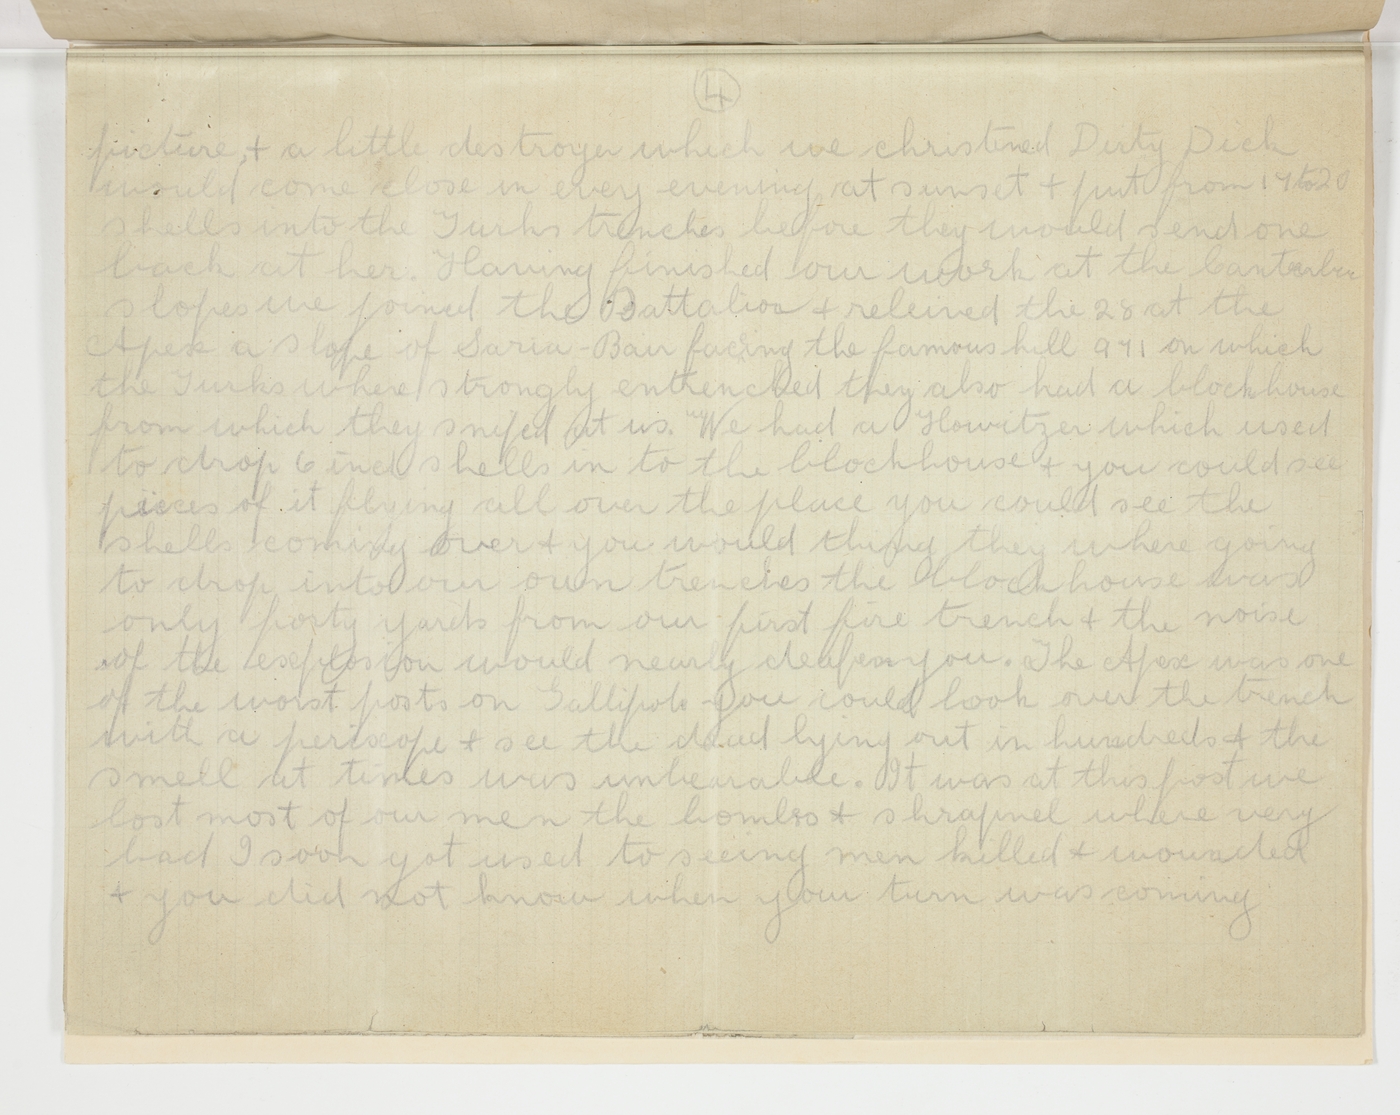 4
picture, + a little destroyer which we christened Dirty Dick
would come close in every evening at sunset + put from 17 to 20
shells into the Turks trenches before they would send one
back at her. Having finished our work at the
slopes we joined the Battalion + releived the 28 at the
Apex a slope of Saria-Bair facing the famous hill 971 on which
the Turks where strongly entrenched they also had a blockhouse
from which they sniped at us. We had a Howitzer which used
to drop 6 inch shells in to the blockhouse + you could see
pieces of it flying all over the place you could see the
shells coming over + you would thing they where going
to drop into our own trenches the blockhouse was
only forty yards from our first fire trench + the noise
of the explosion would nearly deafen you. The Apex was one
of the worst posts on Gallipoli you could look over the trench
with a periscope + see the dead lying out in hundreds + the
smell at times was unbearable. It was at this post we
lost most of our men the bombs + shrapnel where very
bad I soon got used to seeing men killed + wounded
+ you did not know when your turn was coming